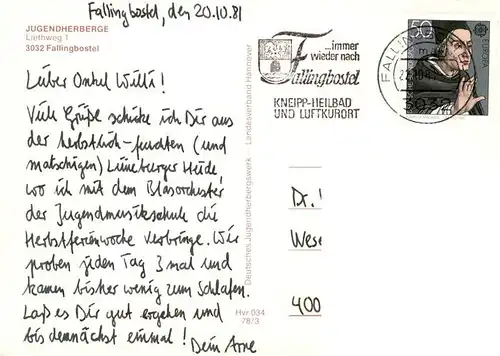 Fallingbostel, den 20.10.81
JUGENDHERBERGE
Liethweg 1
3032 Fallingbostel
Lieber Onkel Willi!
Viele Grüße schicke ich Dir aus
der herbstlich-feuchten (und
matschigen) Lüneburger Heide,
wo ich mit dem Blasorchester
der Jugendmusikschule die
Herbstferienwoche verbringe. Wir
proben jeden Tag 3 mal und
kamen bisher wenig zum Schlafen.
Laß es Dir gut ergehen und
bis demnächst einmal! Dein Arne
Deutsches Jugendherbergswerk Landesverband Hannover
Hvr 034
78/3
...immer
wieder nach
Fallingbostel
KNEIPP-HEILBAD
UND LUFTKURORT
50
EUROPA
Dr.
Wese
400